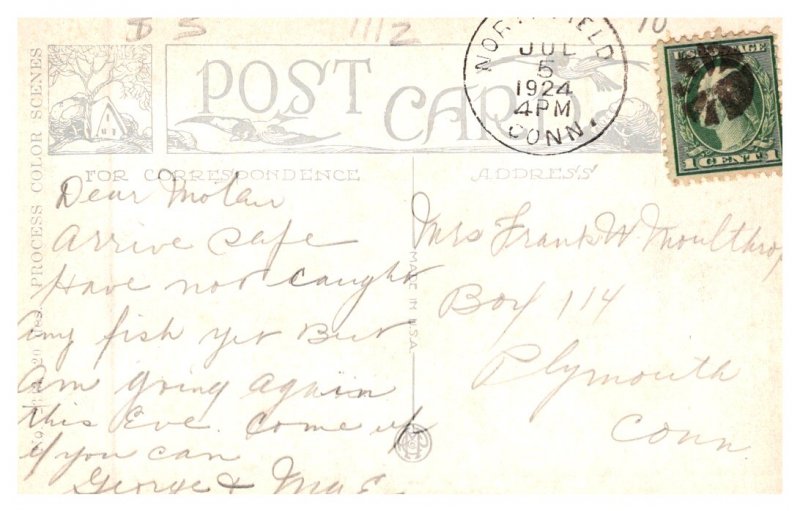 $ 5
1112
10
POST CARD
NORTHFIELD
JUL
5
1924
4PM
CONN.
U.S. POSTAGE
1 CENT 1
FOR CORRESPONDENCE
ADDRESS
PROCESS COLOR SCENES
MADE IN U.S.A.
Dear
Arrive Safe
Have not caught
any fish yet But
Am going again
this Eve. Come up
if you can
George &
Mrs Frank W. Moulthrop
Box 114
Plymouth
Conn